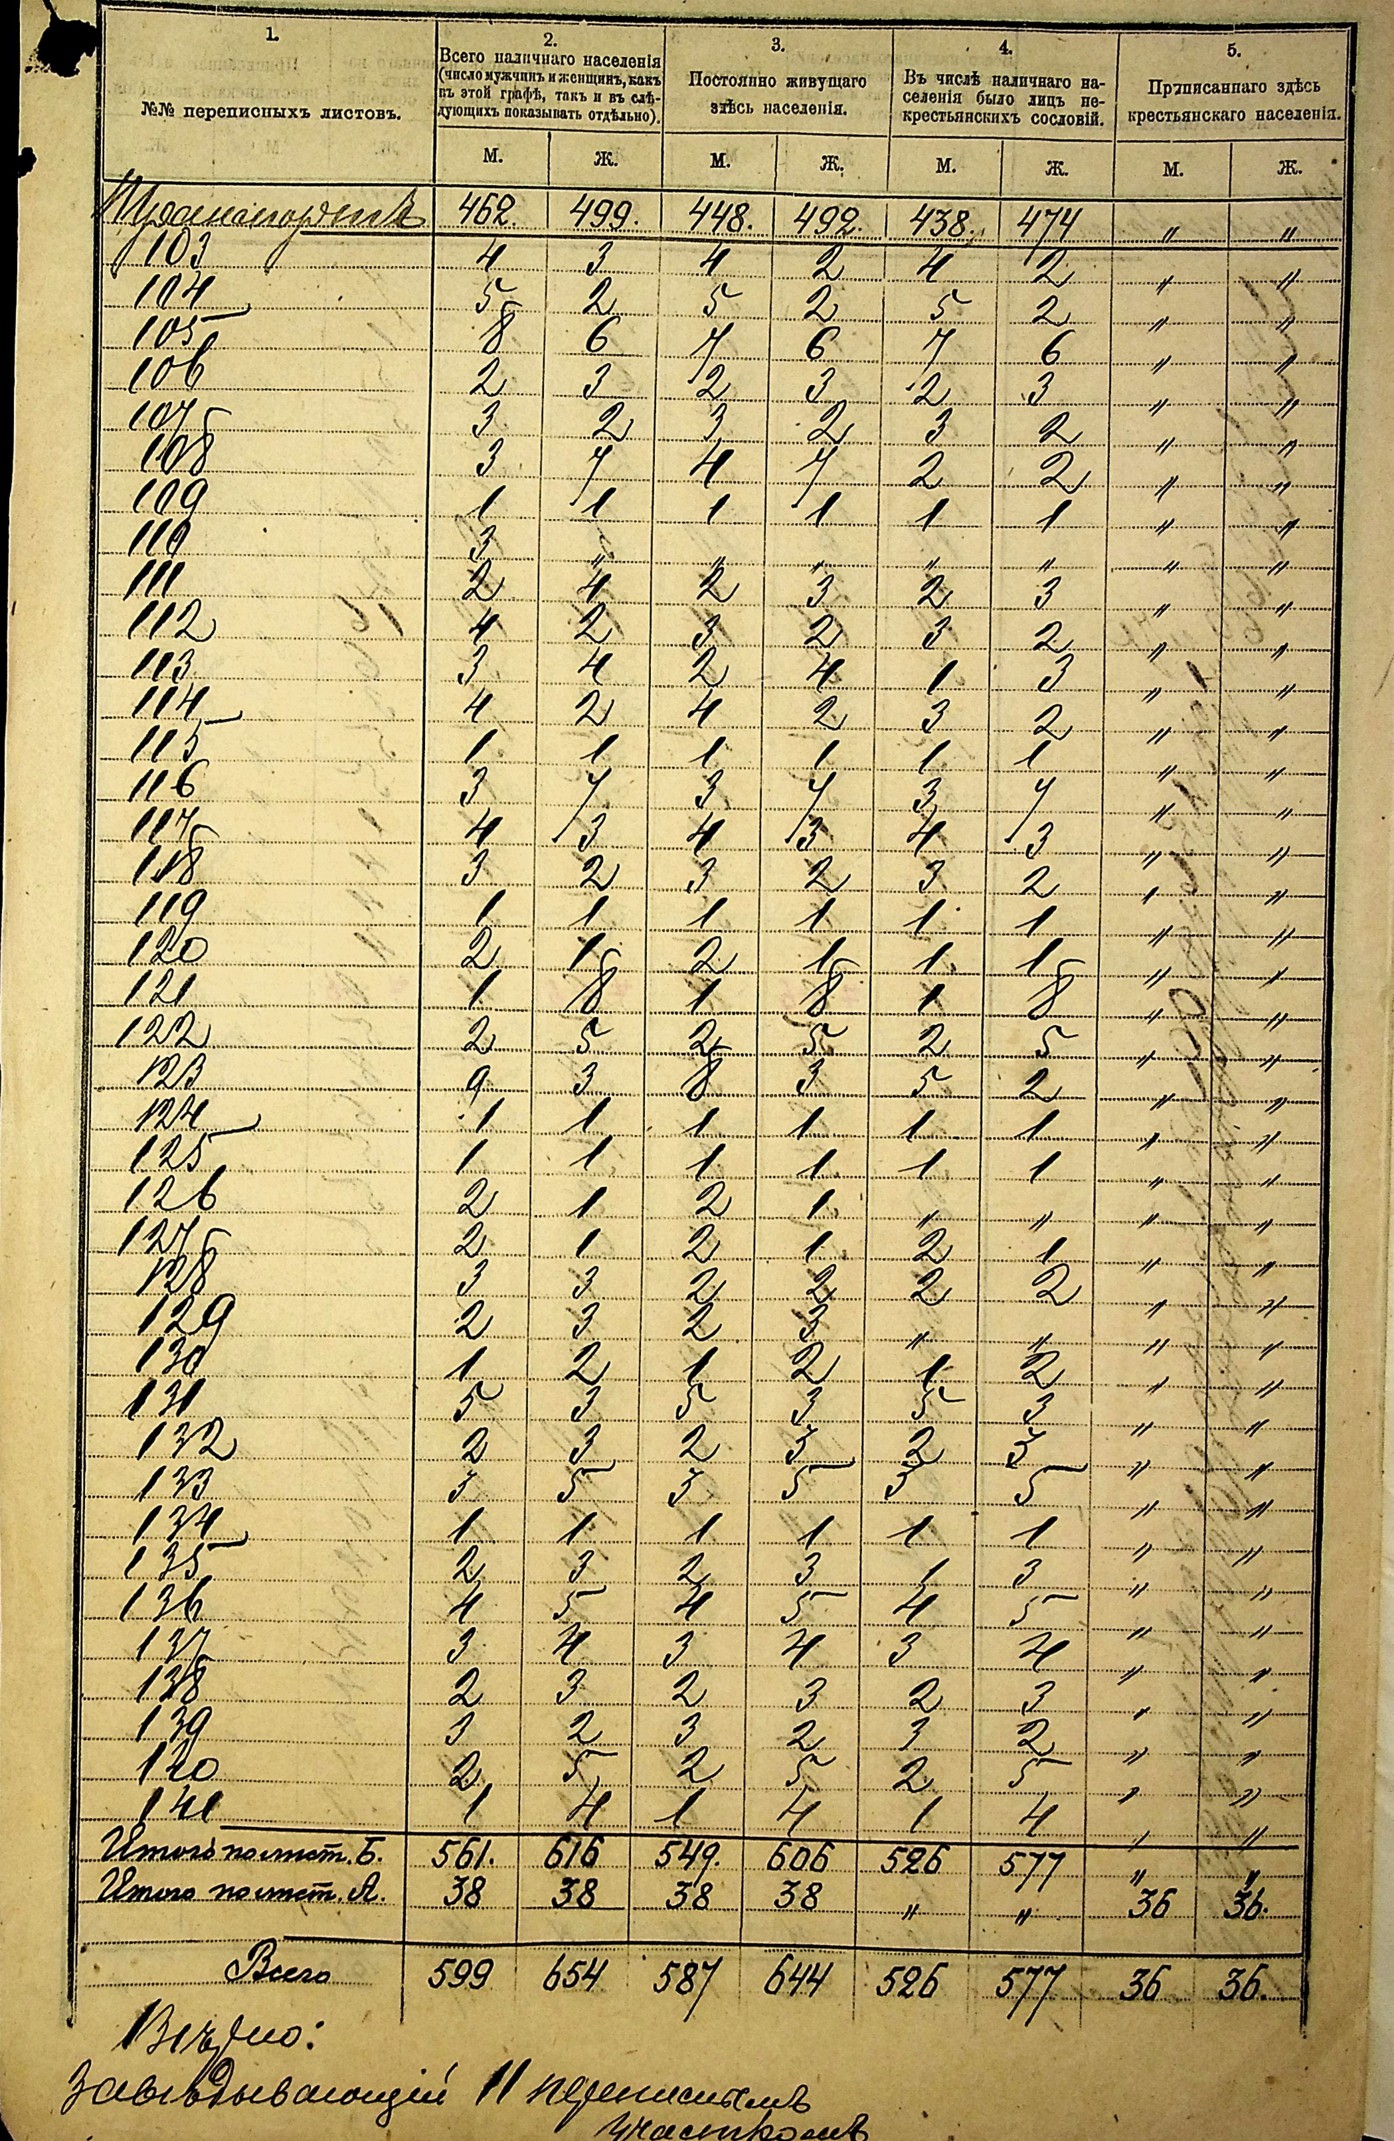 1. 2. 3. 4. 5.
№№ переписныхъ листовъ.
Всего наличнаго населенія
(число мужчинъ и женщинъ, какъ
въ этой графѣ, такъ и въ слѣ-
дующихъ показывать отдѣльно).
Постоянно живущаго
здѣсь населенія.
Въ числѣ наличнаго на-
селенія было лицъ не-
крестьянскихъ сословій.
Приписаннаго здѣсь
крестьянскаго населенія.
М. Ж. М. Ж. М. Ж. М. Ж.
Транспортъ 462. 499. 448. 492. 438. 474 " "
103 4 3 4 2 4 2 " "
104 5 2 5 2 5 2 " "
105 8 6 7 6 7 6 " "
106 2 3 2 3 2 3 " "
107 3 2 3 2 3 2 " "
108 3 7 4 7 2 2 " "
109 1 1 1 1 1 1 " "
110 3 " " " " " " "
111 2 4 2 3 2 3 " "
112 4 2 3 2 3 2 " "
113 3 4 2 4 1 3 " "
114 4 2 4 2 3 2 " "
115 1 1 1 1 1 1 " "
116 3 7 3 7 3 7 " "
117 4 3 4 3 4 3 " "
118 3 2 3 2 3 2 " "
119 1 1 1 1 1 1 " "
120 2 1 2 1 1 1 " "
121 1 8 1 8 1 8 " "
122 2 5 2 5 2 5 " "
123 9 3 8 3 5 2 " "
124 1 1 1 1 1 1 " "
125 1 1 1 1 1 1 " "
126 2 1 2 1 " " " "
127 2 1 2 1 2 1 " "
128 3 3 2 2 2 2 " "
129 2 3 2 3 " " " "
130 1 2 1 2 1 2 " "
131 5 3 5 3 5 3 " "
132 2 3 2 3 2 3 " "
133 3 5 3 5 3 5 " "
134 1 1 1 1 1 1 " "
135 2 3 2 3 1 3 " "
136 4 5 4 5 4 5 " "
137 3 4 3 4 3 4 " "
138 2 3 2 3 2 3 " "
139 3 2 3 2 3 2 " "
140 2 5 2 5 2 5 " "
141 1 4 1 4 1 4 " "
Итого по лист. Б. 561. 616 549. 606 526 577 " "
Итого по лист. А. 38 38 38 38 " " 36 36.
Всего 599 654 587 644 526 577 36 36.
Вѣрно:
Завѣдывающій 11 переписнымъ
участкомъ